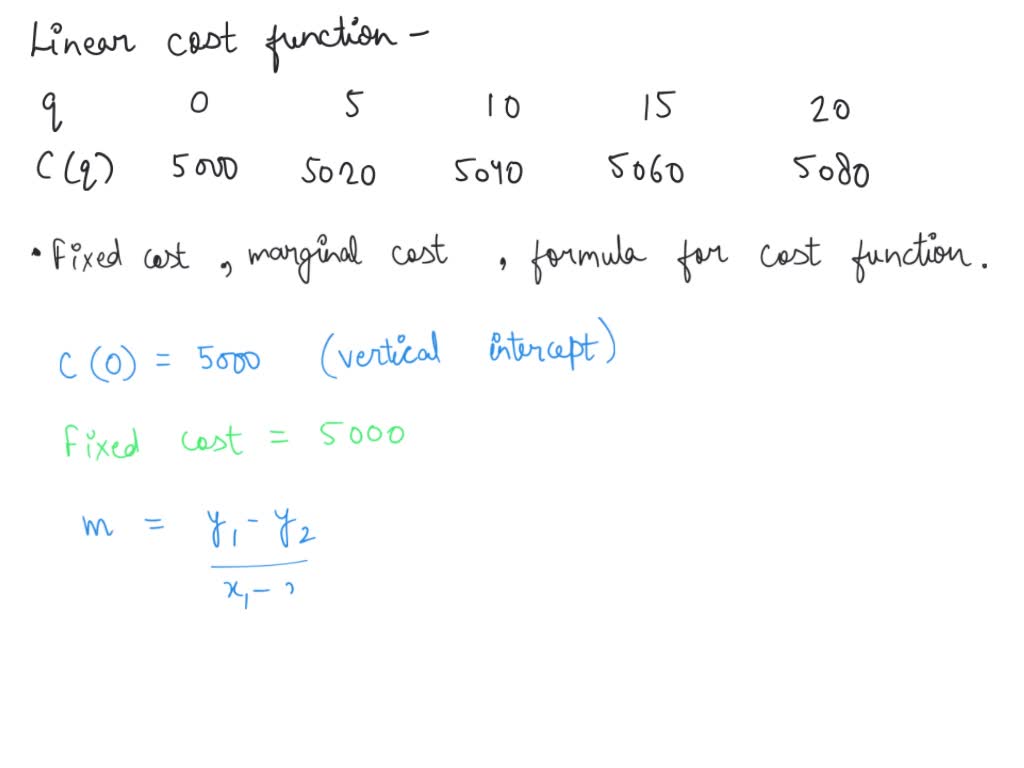 Linear cost function -
q 0 5 10 15 20
C(q) 5000 5020 5040 5060 5080
• Fixed cost , marginal cost , formula for cost function.
C(0) = 5000 (vertical intercept)
Fixed cost = 5000
m = y1 - y2
x1 -